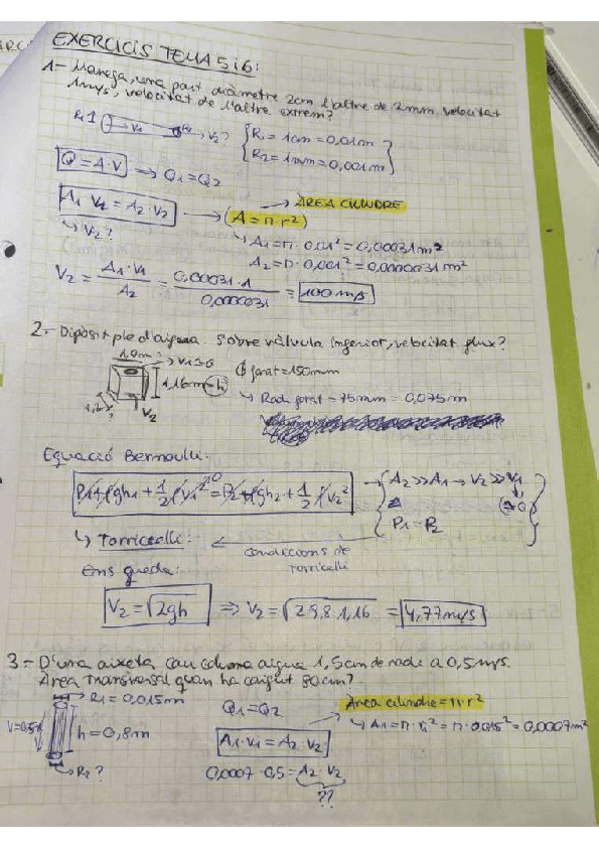 EXERCICIS TEMA 5 i 6:
1- Manega, una part diàmetre 2cm l'altre de 2mm. velocitat
1m/s, velocitat de l'altre extrem?
R1 V1 R2 V2?
R1 = 1cm = 0,01m
R2 = 1mm = 0,001m
Q = A · V ⇒ Q1 = Q2
→ ÀREA CILINDRE
A1 V1 = A2 · V2 → (A = π · r²)
↳ V2?
↳ A1 = π · 0,01² = 0,00031 m²
A2 = π · 0,001² = 0,0000031 m²
V2 = A1 · V1 / A2 = 0,00031 · 1 / 0,0000031 = 100 m/s
2- Dipòsit ple d'aigua. S'obre vàlvula inferior, velocitat flux?
1,0m → V1≈0
1,16m = h
1,2
V2
ϕ forat = 150mm
↳ Radi forat = 75mm = 0,075m
Equació Bernoulli:
P1 + ρgh1 + 1/2 ρV1² = P2 + ρgh2 + 1/2 ρV2²
→ A2 >> A1 → V2 >> V1
(≈0)
P1 = P2
↳ Torricelli:
condicions de
Torricelli
Ens queda:
V2 = √2gh ⇒ V2 = √2·9,8·1,16 = 4,77m/s
3- D'una aixeta cau columna aigua 1,5cm de radi a 0,5m/s.
Àrea transversal quan ha caigut 80cm?
R1 = 0,015m
V=0,5
h = 0,8m
R2?
Q1 = Q2
Àrea cilindre = π · r²
↳ A1 = π · r1² = π · 0,015² = 0,0007m²
A1 · V1 = A2 · V2
0,0007 · 0,5 = A2 · V2
??